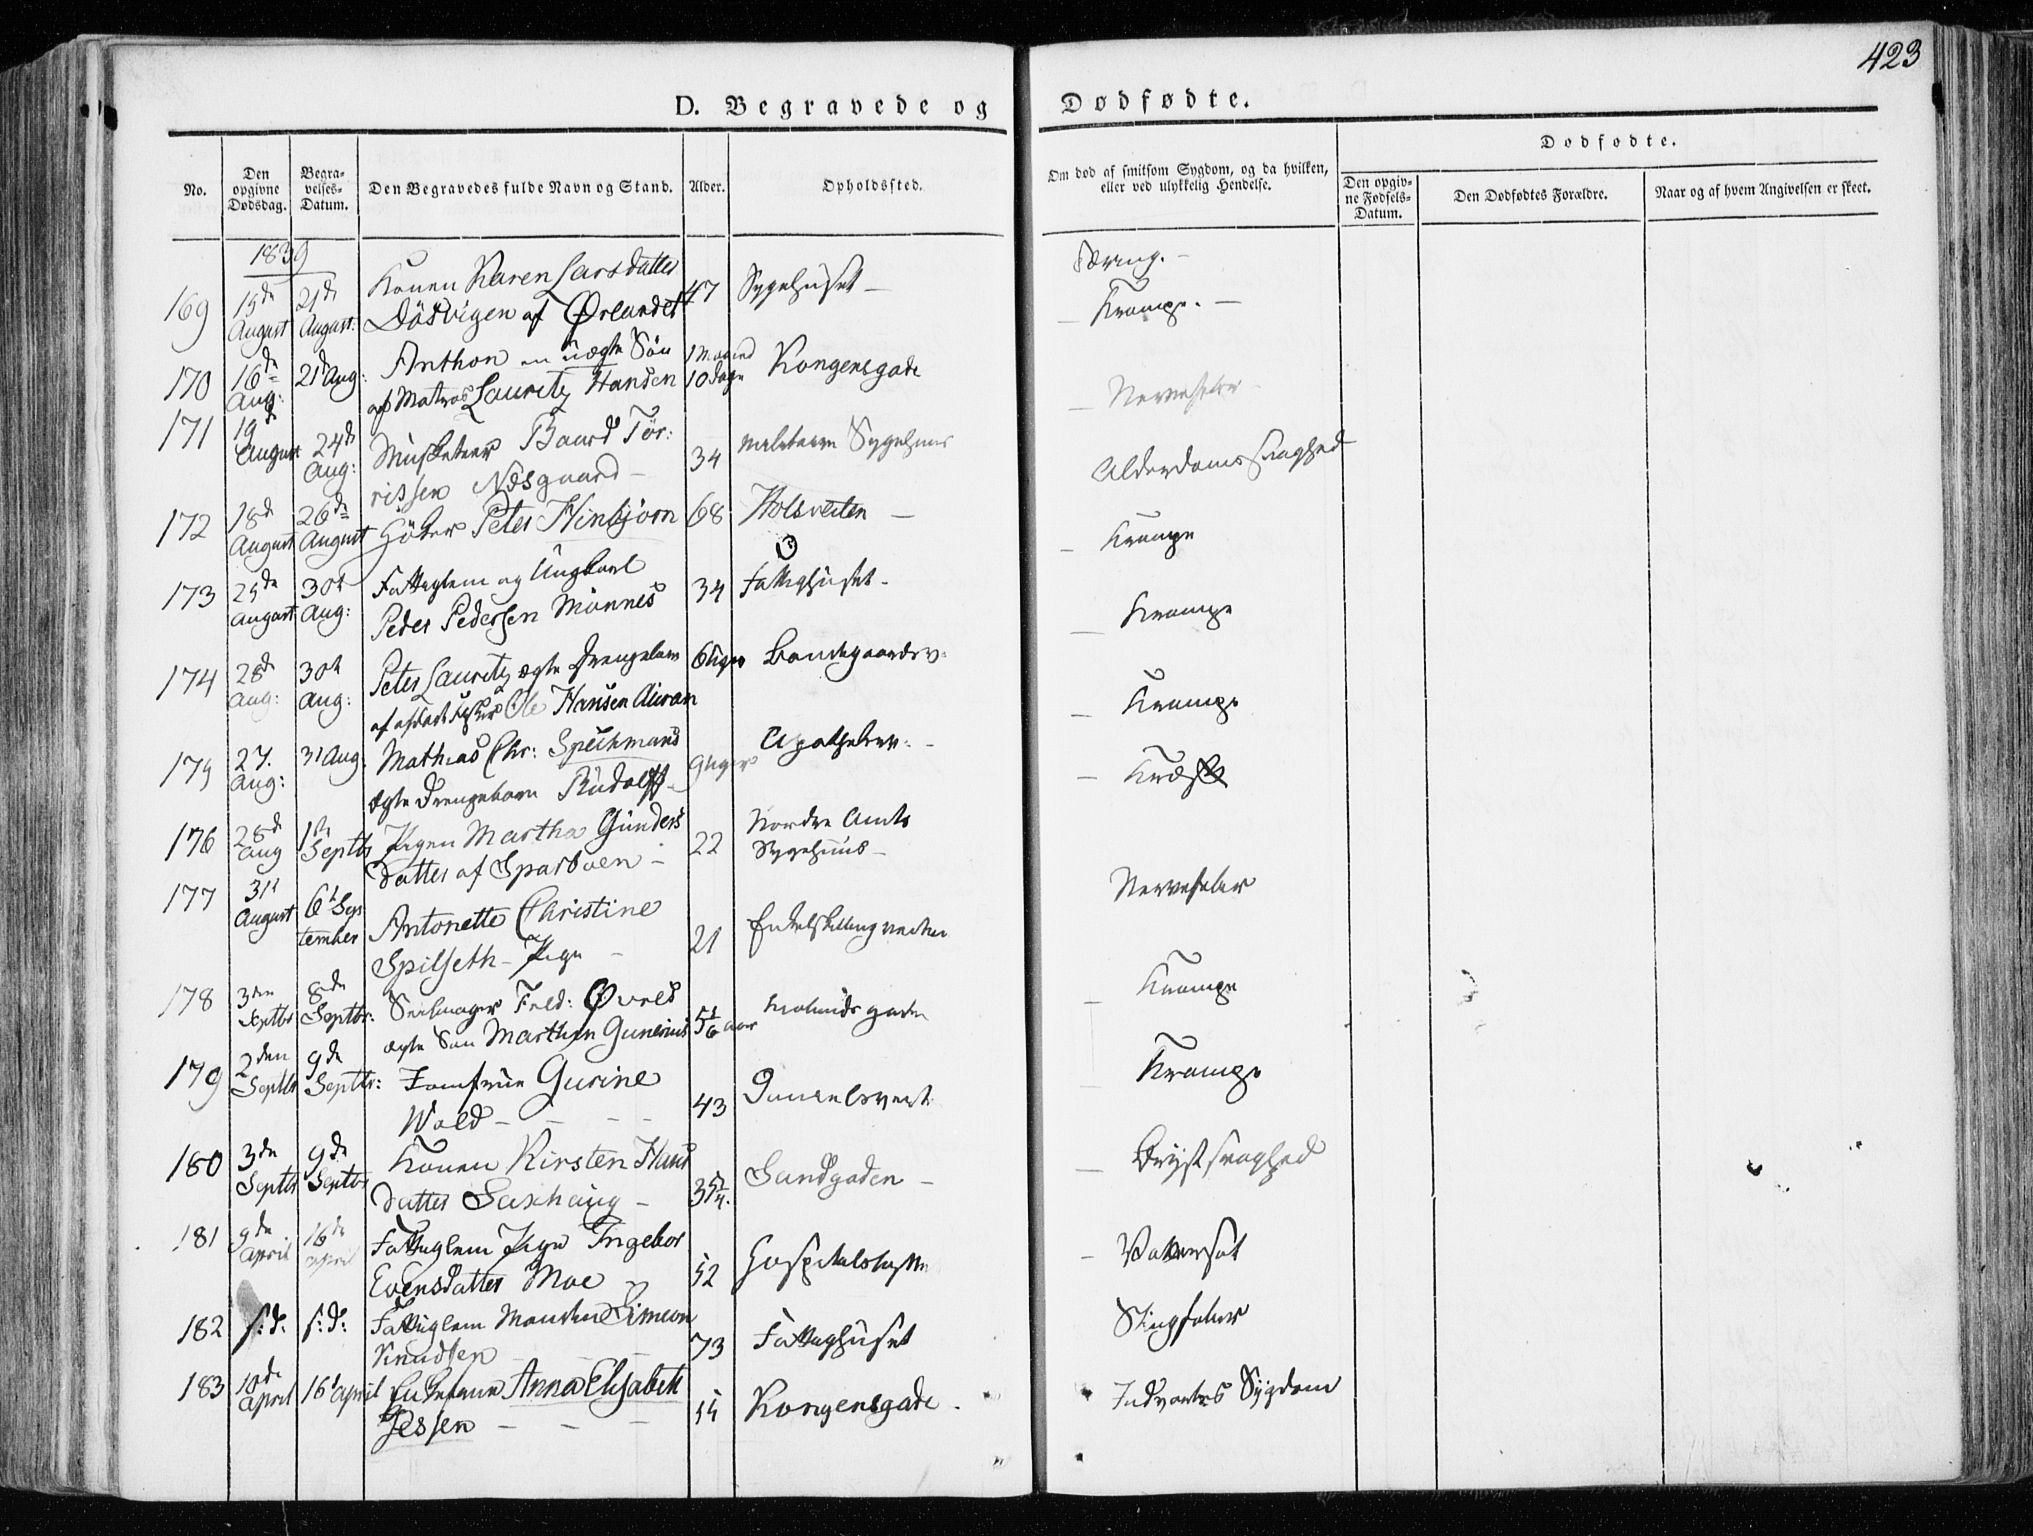 423
D. Begravede og Dødfødte.
No.
Den opgivne Dødsdag.
Begravelses-Datum.
Den Begravedes fulde Navn og Stand.
Alder.
Opholdssted.
Om død af smitsom Sygdom, og da hvilken,
eller ved ulykkelig Hendelse.
Dødfødte.
Den opgivne Fødsels-Datum.
Den Dødfødtes Forældre.
Naar og af hvem Angivelsen er skeet.
1839
169 15de August 21de August: Konen Karen Larsdatter
Dösvigen af Ørlandet 47 Sygehuset –
Tæring. –
170 16de Aug: 21d Aug: Anthon en uægte Sön
af Matros Lauritz Hansen 1 Maaned 10 Dage Kongensgade
– Krampe. –
171 19d August 24de Aug: Musketeer Baard Tör:
rissen Næsgaard – 34 Militaire Sygehuus
– Nervefeber –
172 18d August 26de August Höker Peter Hinbjörn 68 –
Alderdomssvaghed
173 25de August 30te Aug: Fattiglem og Ungkarl
Peder Pedersen Monnes 34 Fattighuset –
– Krampe
174 28d Aug: 30te Aug: Peter Lauritz ægte Drengebarn
af afdøde Fisker Ole Hansen 6 Uger
– Krampe
175 27. Aug: 31 Aug: Mathias Chr: Spechmans
ægte Drengebarn Rudolff – 9 Uger Apothekerv: –
– Krampe
176 28d Aug 1te Septbr Pigen Martha Gunders
datter af Sparboen – 22 Nordre Amts
Sygehuus –
–
177 31t August 6t September Antonette Christine
Spilseth – Pige – 21 Enkelskillingveiten
Nervefeber
178 3die Septbr 8de Septbr: Seilmager Fred: Øvres
ægte Sön Marthin Gunerius 5 1/6 aar
– Krampe
179 2den Septbr 9de Septbr: Jomfrue Gurine
Wold – – – – 43 Danielsveit
Krampe
180 3die Septbr 9de Septbr Konen Kirsten Hans
datter Saxhaug – 35 1/4. Sandgaden –
– Brystsvaghed
181 9de April 16de April Fattiglem Pige Ingebor
Evensdatter Moe 52 Hospitalsløkken
– Vattersot
182 s: d. s: d: Fattiglem Simeon
Knudsen – – 73 Fattighuset
Stingfeber
183 10de April 16t April Enkefrue Anna Elisabeth
Jessen – – – 55 Kongensgade.
Indvortes Sygdom